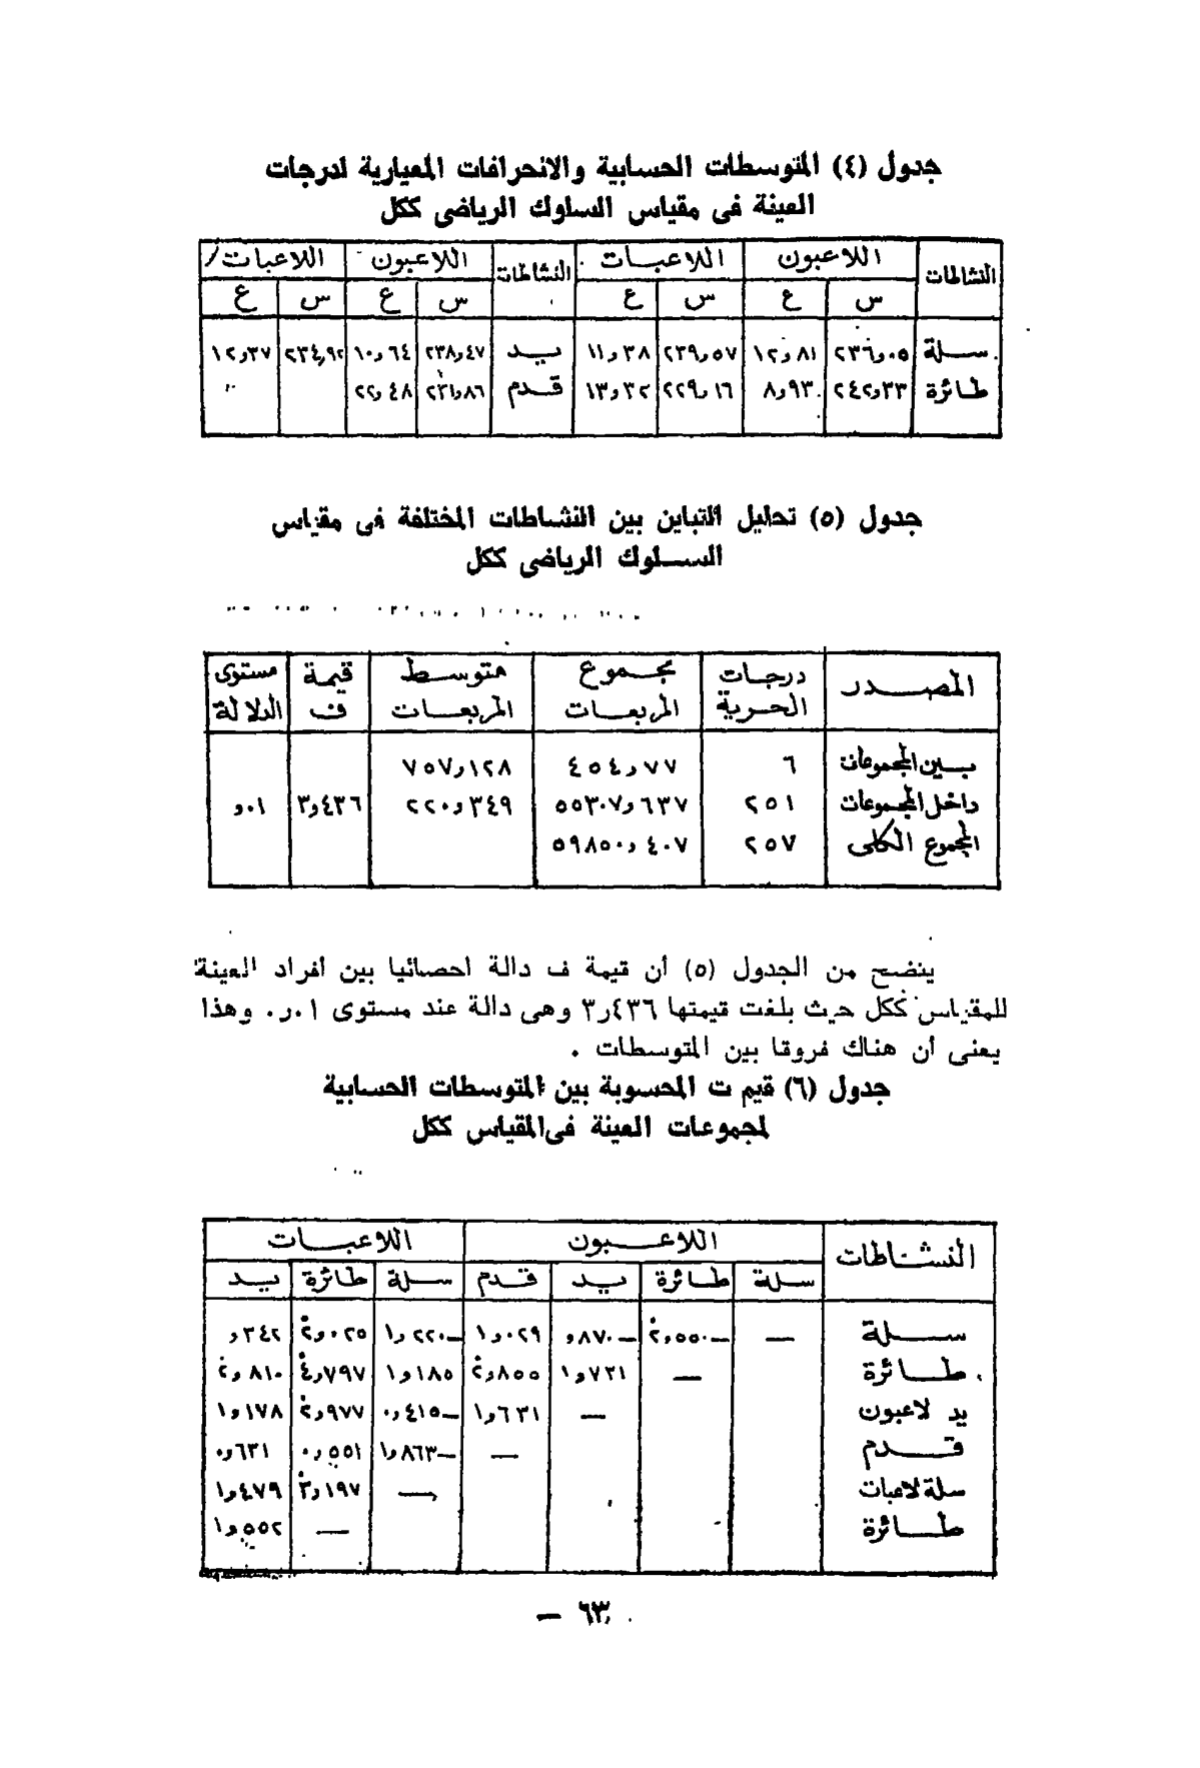 جدول (٤) المتوسطات الحسابية والانحرافات المعيارية لدرجات
العينة فى مقياس السلوك الرياضى ككل
النشاطات اللاعبون اللاعبات النشاطات اللاعبون اللاعبات
س ع س ع س ع س ع
سلة ٢٣٦و٠٥ ١٢و٨١ ٢٣٩و٥٧ ١١و٣٨ يد ٢٣٨و٤٧ ١٠و٦٤ ٢٣٤و٩٢ ١٢و٣٧
طائرة ٢٤٢و٣٣ ٨و٩٣ ٢٢٩و١٦ ١٣و٣٢ قدم ٢٣١و٨٦ ٢٢و٤٨
جدول (٥) تحليل التباين بين النشاطات المختلفة فى مقياس
السلوك الرياضى ككل
المصدر درجات الحرية مجموع المربعات متوسط المربعات قيمة ف مستوى الدلالة
بين المجموعات ٦ ٤٥٤و٧٧ ٧٥٧و١٢٨
داخل المجموعات ٢٥١ ٥٥٣٠٧و٦٣٧ ٢٢٠و٣٤٩ ٣و٤٣٦ و٠١
المجموع الكلى ٢٥٧ ٥٩٨٥٠و٤٠٧
يتضح من الجدول (٥) أن قيمة ف دالة احصائيا بين أفراد العينة
للمقياس ككل حيث بلغت قيمتها ٣ر٤٣٦ وهى دالة عند مستوى ٠١ر٠ وهذا
يعنى أن هناك فروقا بين المتوسطات .
جدول (٦) قيم ت المحسوبة بين المتوسطات الحسابية
لمجموعات العينة فى المقياس ككل
النشاطات اللاعبون اللاعبات
سلة طائرة يد قدم سلة طائرة يد
سلة — —٢و٥٥٠ —و٨٧٠ ١و٠٢٩ —١و٢٢٠ ٢و٠٢٥ و٣٤٢
طائرة — ١و٧٢١ ٢و٨٥٥ ١و١٨٥ ٤و٧٩٧ ٢و٨١٠
يد لاعبون — ١و٦٣١ —٠و٤١٥ ٢و٩٧٧ ١و١٧٨
قدم — —١و٨٦٣ ٠و٥٥١ ٠و٦٣١
سلة لاعبات — ٣و١٩٧ ١و٤٧٩
طائرة — ١و٥٥٢
— ٦٣